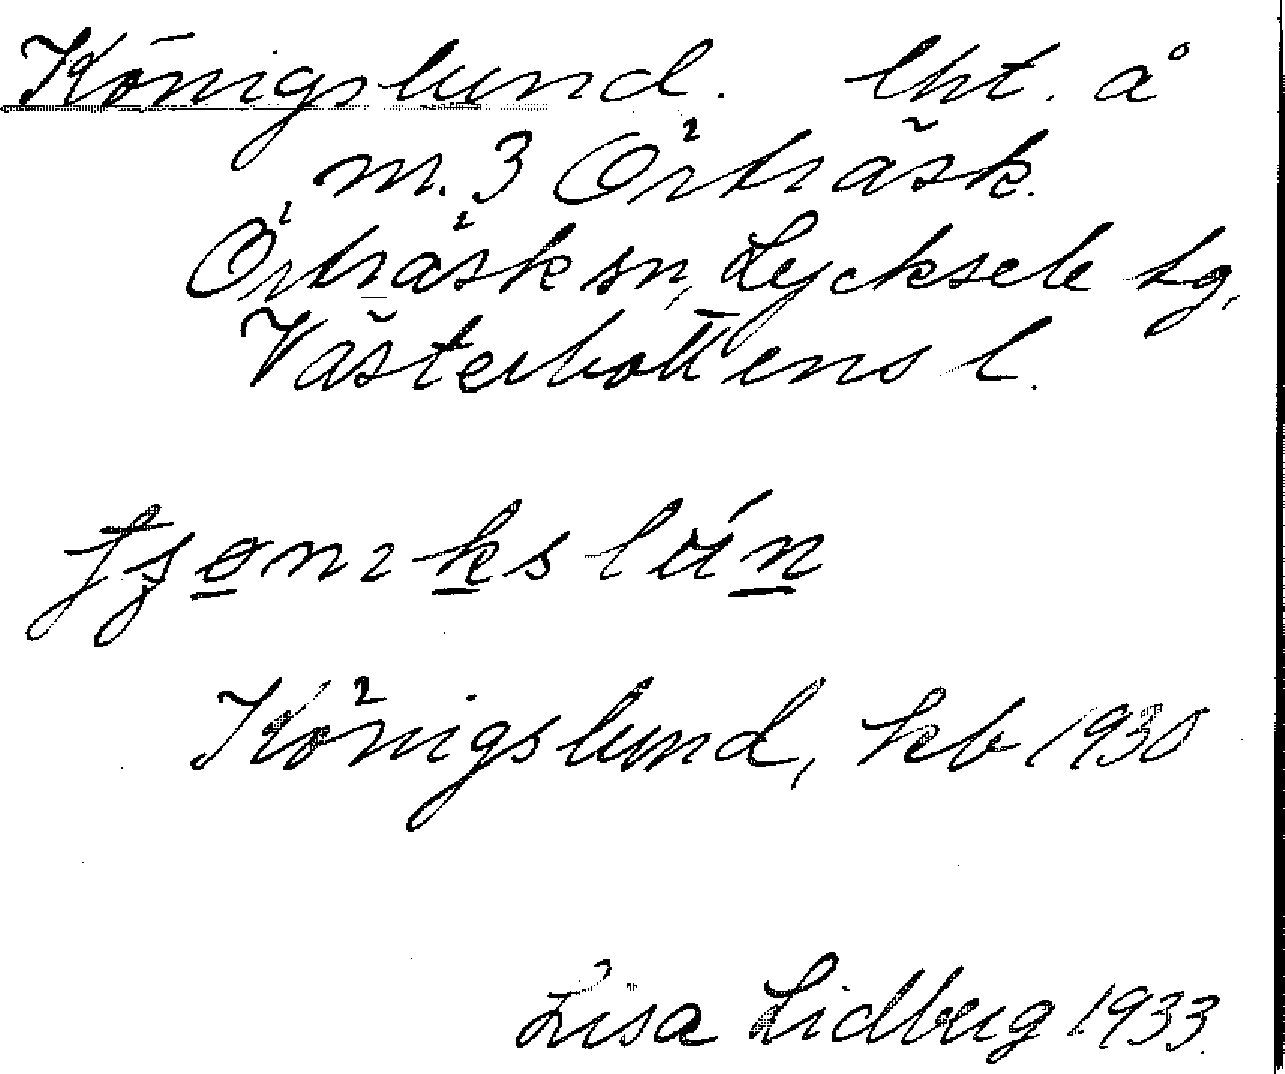 Königslund. lht. å
m. 3 Örträsk.
Örträsk sn, Lycksele lg,
Västerbottens l.
Königslund, kb 1930
Lisa Lidberg 1933.